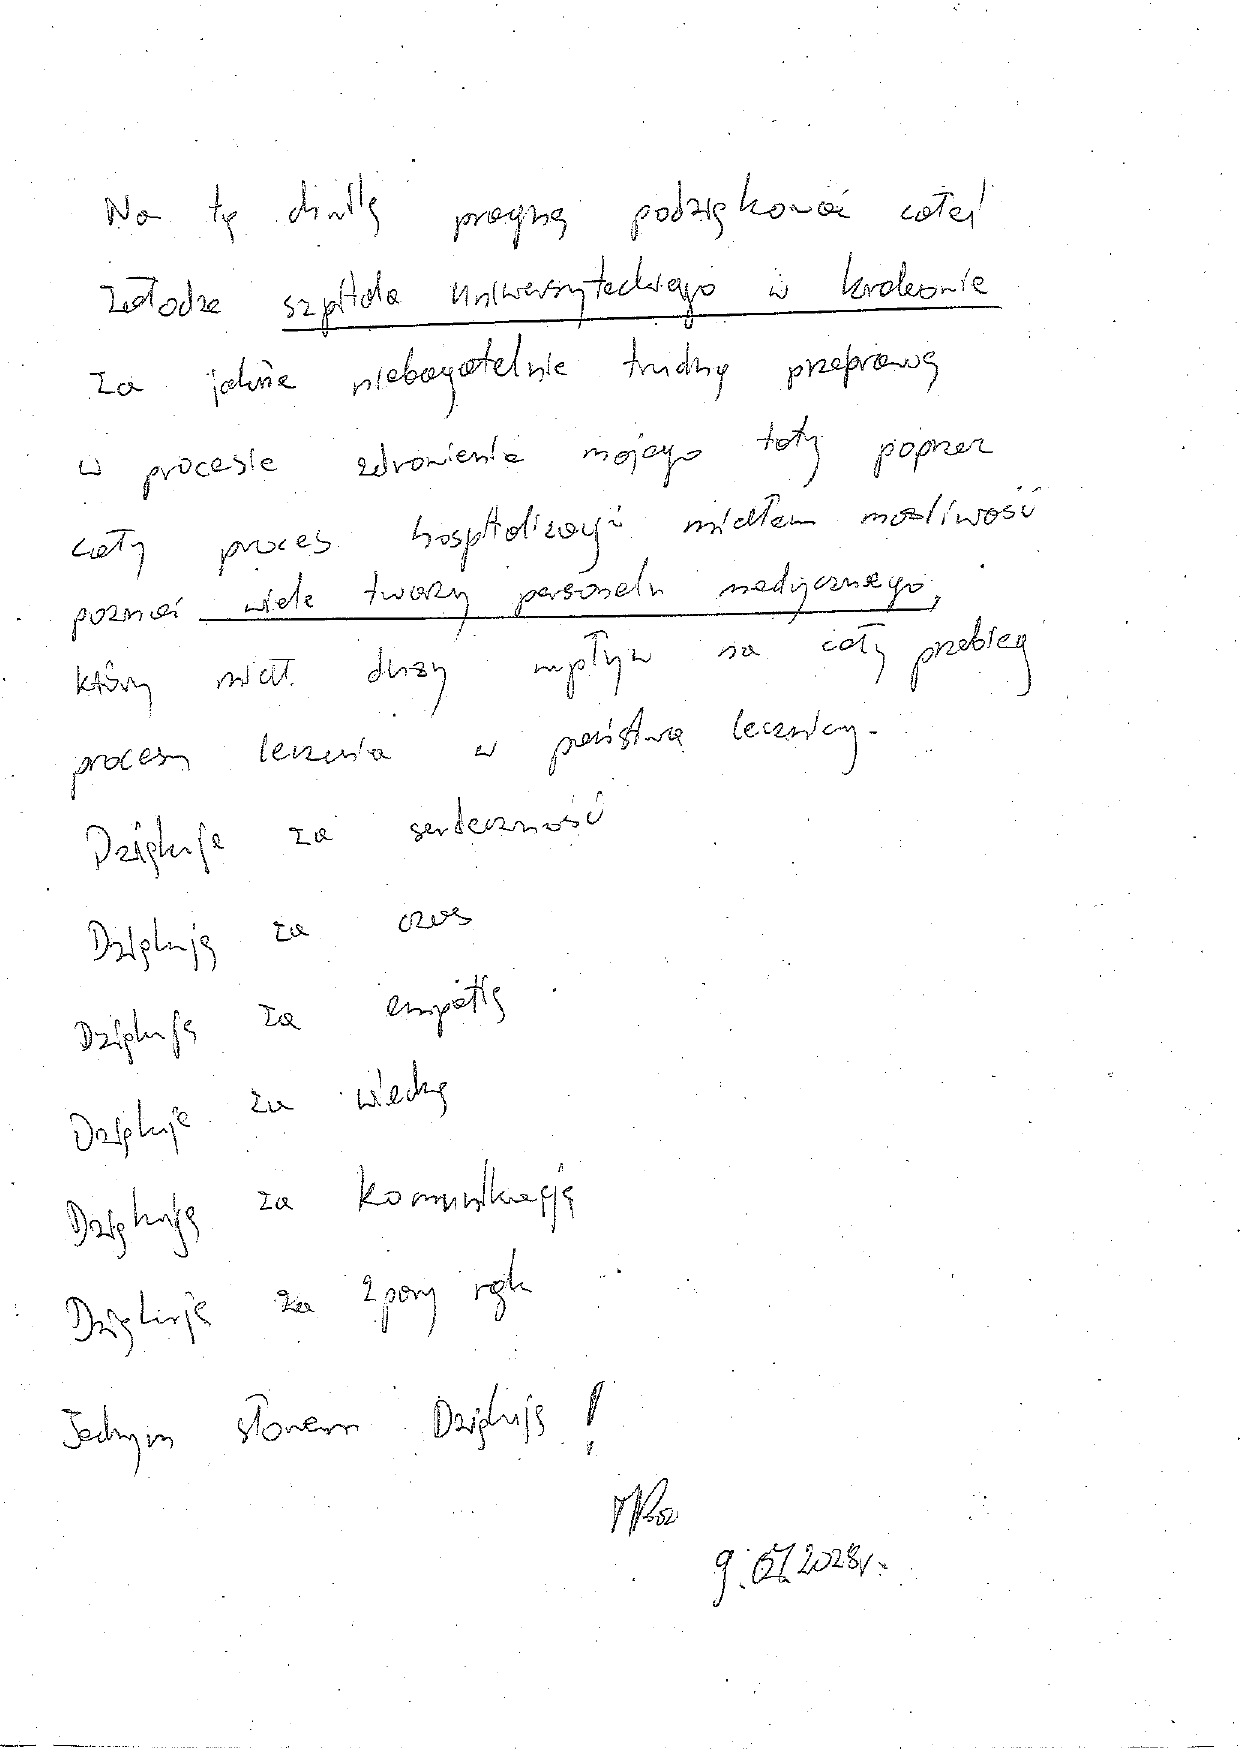 Na tę chwilę pragnę podziękować całej
załodze szpitala Uniwersyteckiego w krakowie
za jakże niebagatelnie trudną przeprawę
w procesie zdrowienia mojego taty poprzez
cały proces hospitalizacji miałam możliwość
poznać wiele twarzy personelu medycznego,
który miał duży wpływ na cały przebieg
procesu leczenia w państwa lecznicy.
Dziękuje za serdeczność
Dziękuję za czas
Dziękuję za empatię
Dziękuje za wiedzę
Dziękuję za komunikację
Dziękuję za 2 pary rąk
Jednym słowem Dziękuję!